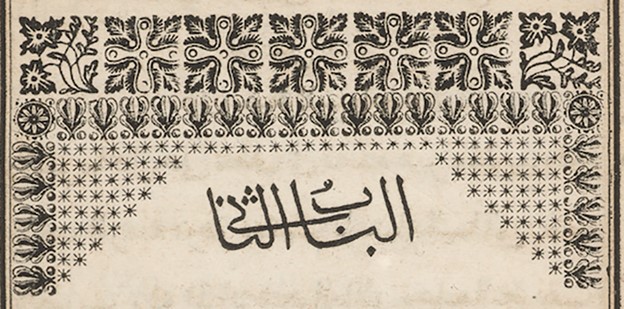 البابُ الثاني